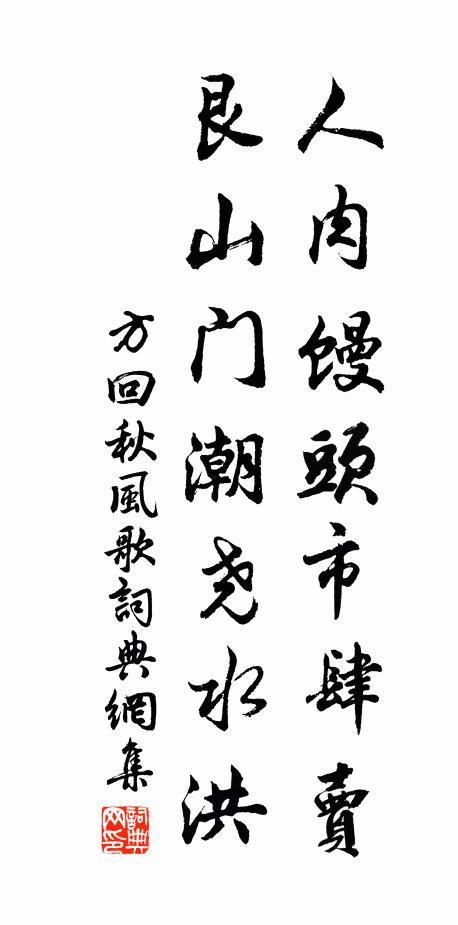 人肉饅頭市肆賣
艮山門潮尧水洪
方回秋風歌詞典網集
詞典网印